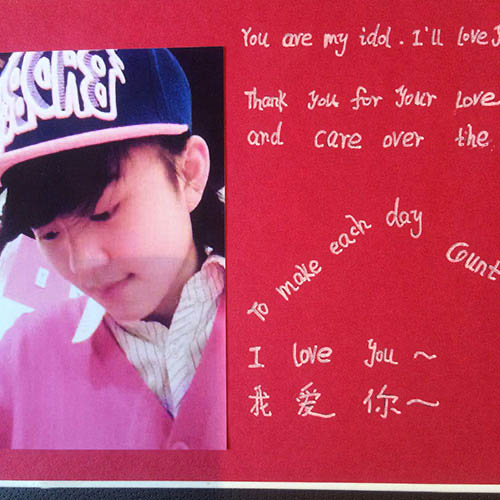 You are my idol. I'll love
Thank you for your love
and care over the
To make each day
Count
I love you ~
我爱你~